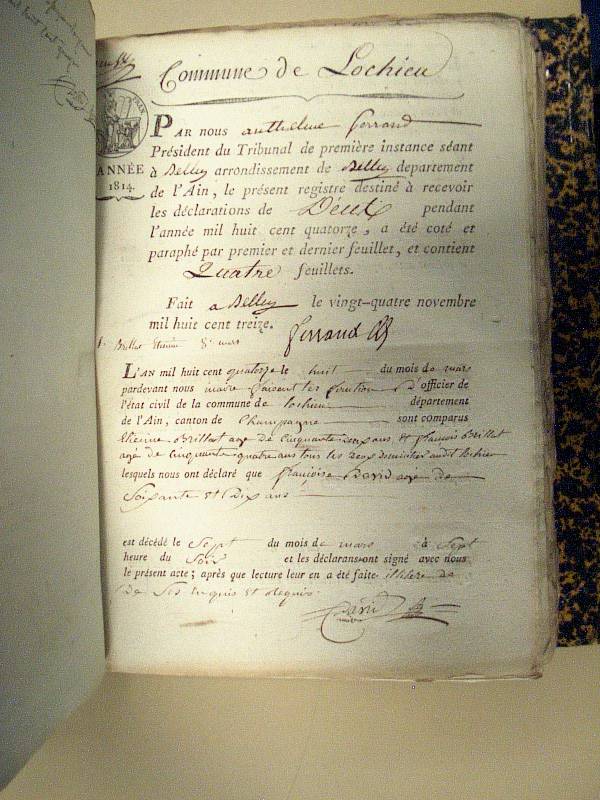 Commune de Lochieu
ANNÉE
1814.
PAR nous anthelme ferrand
Président du Tribunal de première instance séant
à Belley arrondissement de Belley departement
de l'Ain, le présent registre destiné à recevoir
les déclarations de Décès pendant
l'année mil huit cent quatorze, a été coté et
paraphé par premier et dernier feuillet, et contient
Quatre feuillets.
Fait a Belley le vingt-quatre novembre
mil huit cent treize. ferrand
1. Etienne 8 mars
L'AN mil huit cent quatorze le huit du mois de mars
pardevant nous maire faisant les fonction d'officier de
l'état civil de la commune de Lochieu département
de l'Ain, canton de Champagne sont comparus
Etienne Brillat age de Cinquante deux ans et françois Brillat
agé de Cinquante quatre ans tous les deux domiciliés audit Lochieu
lesquels nous ont déclaré que françoise David agee de
Soixante et Dix ans
est décédé le Sept du mois de mars à Sept
heure du Soir et les déclarans ont signé avec nous
le présent acte; après que lecture leur en a été faite illitere de
De Ses enquis et Requis.
David